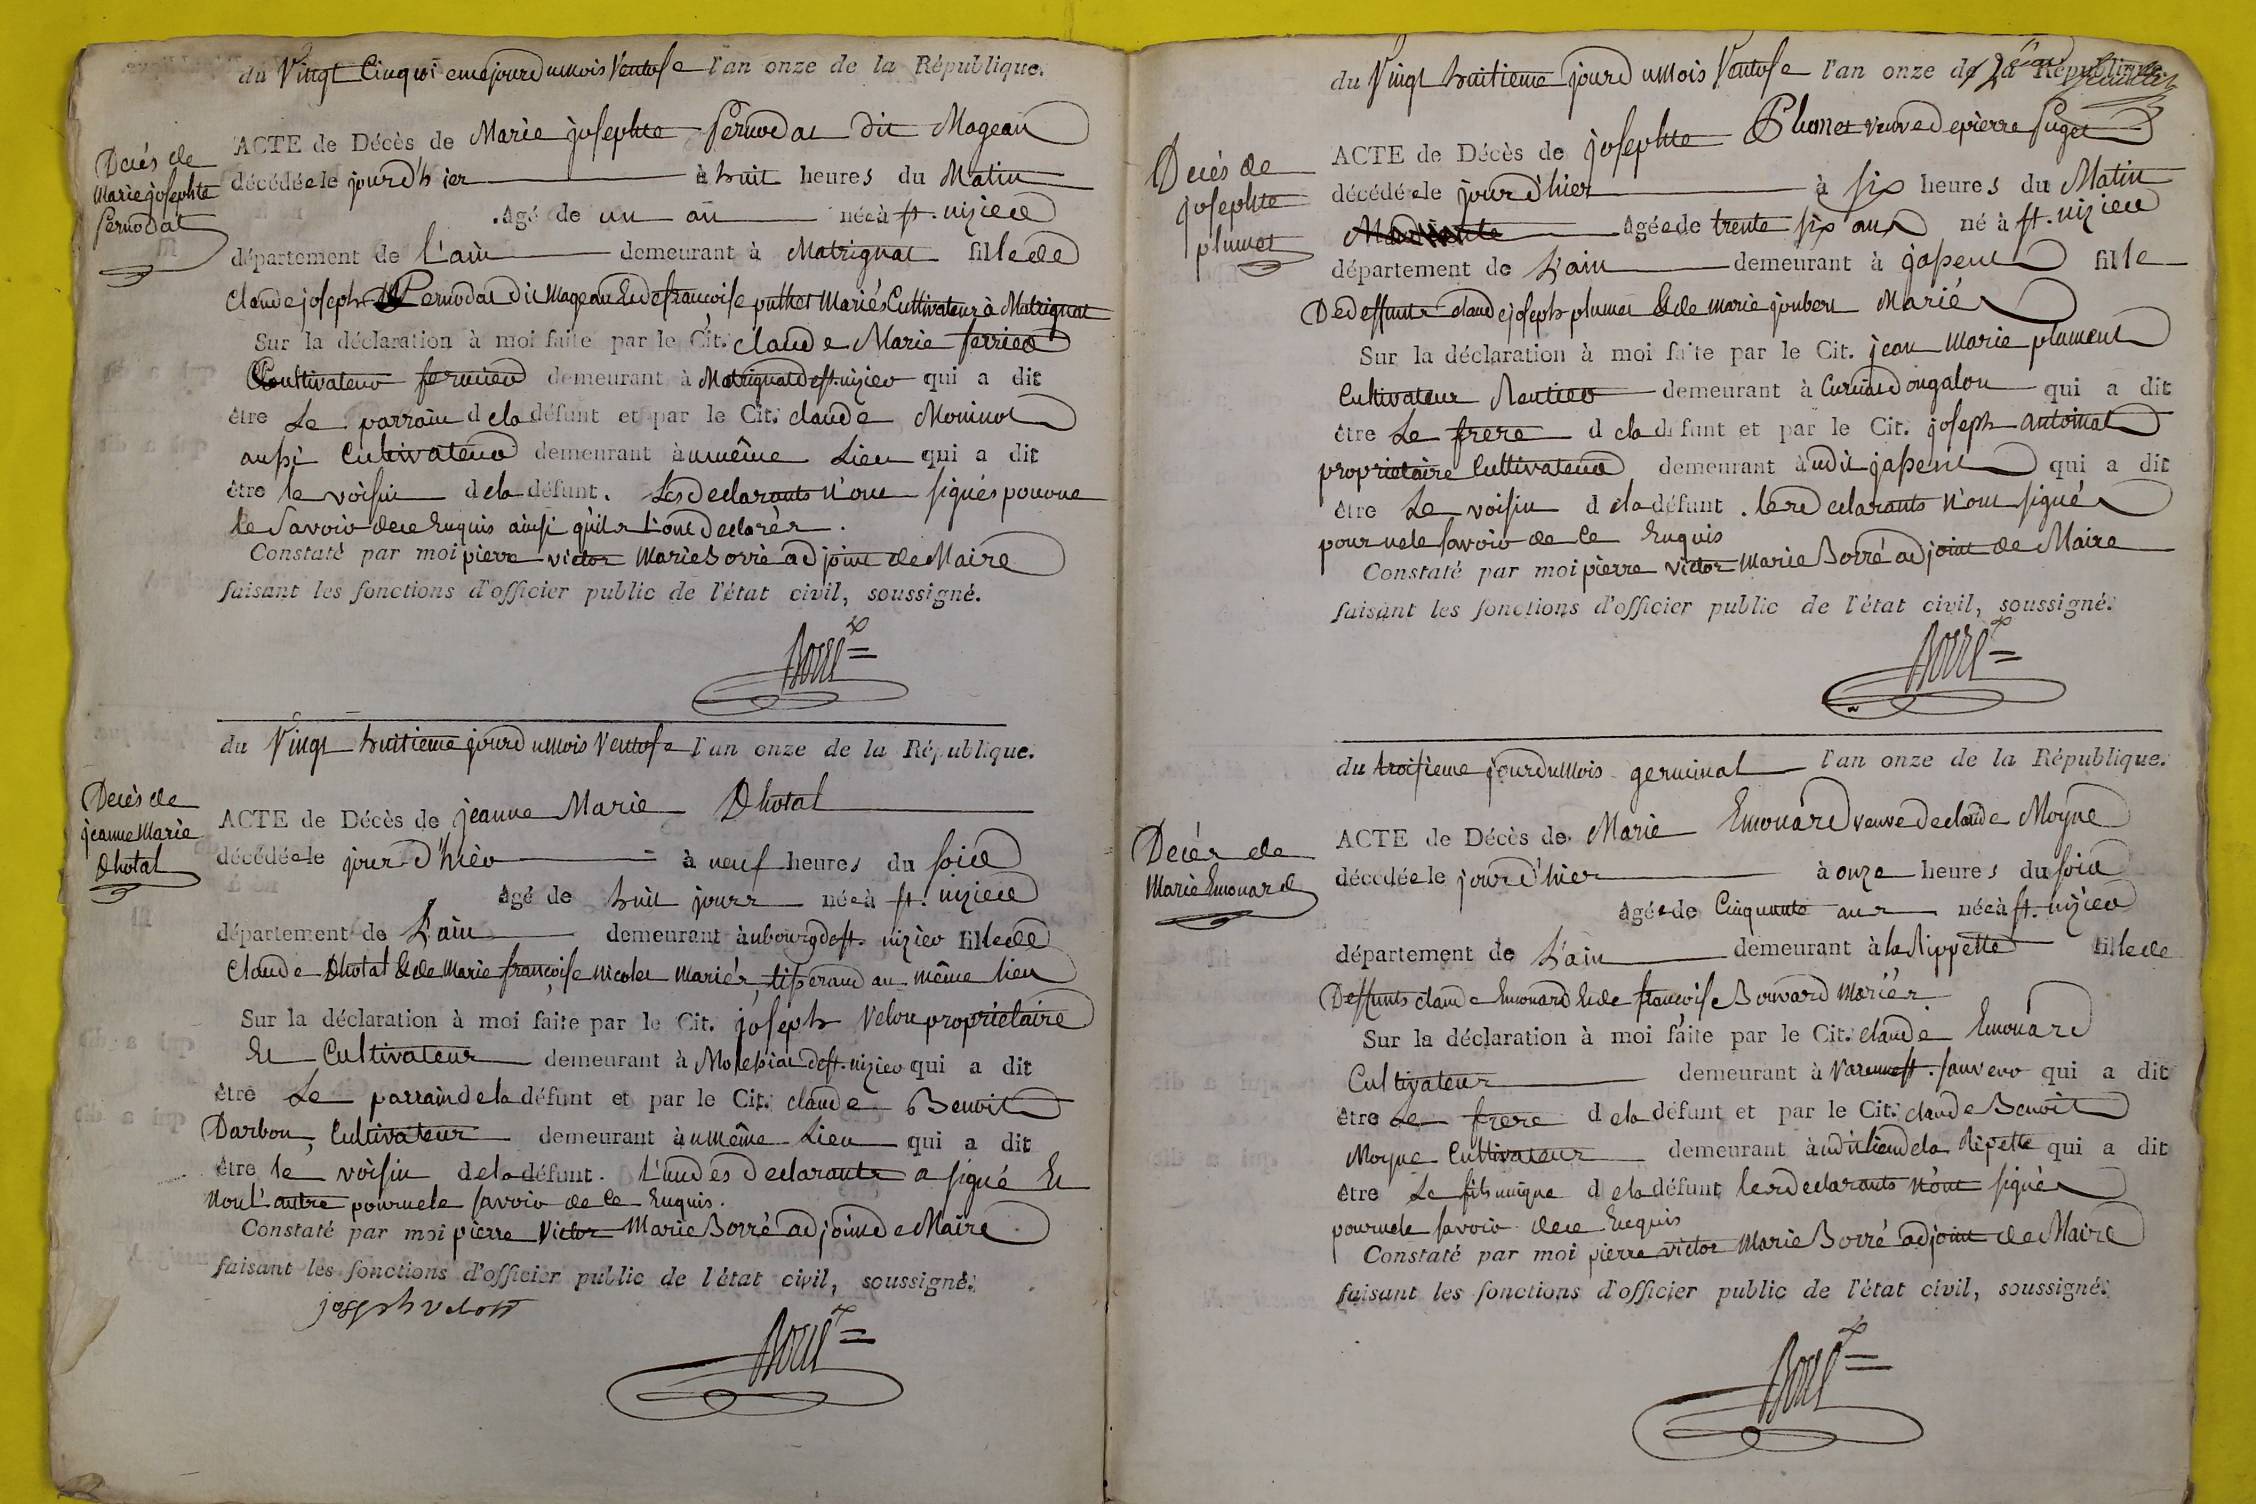 du Vingt Cinqui eme jour du mois Ventose l'an onze de la République.
Decés de
Marie josephte
Pernodat
ACTE de Décès de Marie josephte Pernodat dit Mageau
décédée le jourd'hier à huit heures du Matin
âgé de un an née à st. nizier
département de L'ain demeurant à Matrignat fille de
Claude joseph Pernodat dit Mageau Et de francoise puthet Mariés Cultivateur à Matrignat
Sur la déclaration à moi faite par le Cit. claude Marie ferrier
Cultivateur fermier demeurant à Matrignat de st. nizier qui a dit
être Le parrain de la défunt et par le Cit. claude Moninot
aussi Cultivateur demeurant à u même Lieu qui a dit
être le voisin de la défunt. Les declarants n'ont signés pour ne
le Savoir de ce Enquis ainsi qu'ils l'ont declarés.
Constaté par moi pierre victor Marie Borré adjoint de Maire
faisant les fonctions d'officier public de l'état civil, soussigné.
Borré
du Vingt huitieme jour du mois Ventose l'an onze de la République.
Decés de
jeanne Marie
Dhotal
ACTE de Décès de jeanne Marie Dhotal
décédée le jour d'hier à neuf heures du soir
âgé de huit jours née à st. nizier
département de L'ain demeurant à u bourg de st. nizier fille de
Claude Dhotal & de Marie françoise nicolet mariés, tisserand au même lieu
Sur la déclaration à moi faite par le Cit. joseph Velon proprietaire
Et Cultivateur demeurant à Molessiat de st. nizier qui a dit
être Le parrain de la défunt et par le Cit. claude Benoit
Darbon, Cultivateur demeurant à u même Lieu qui a dit
être le voisin de la défunt. L'un des Declarants a signé Et
non l'autre pour ne le savoir de Ce Enquis.
Constaté par moi pierre Victor Marie Borré adjoint de Maire
faisant les fonctions d'officier public de l'état civil, soussigné.
joseph velon
Borré
du Vingt huitieme jour du mois Ventose l'an onze de la République.
Decés de
josephte
plumet
ACTE de Décès de josephte Plumet veuve de pierre Puget
décédée le jour d'hier à six heures du Matin
âgée de trente six ans né à st. nizier
département de L'ain demeurant à jassent fille
De deffunts claude joseph plumet & de marie joubert Mariés
Sur la déclaration à moi faite par le Cit. jean Marie plument
Cultivateur Rentier demeurant à Curciat dongalon qui a dit
être Le frere de la défunt et par le Cit. joseph antoinat
proprietaire Cultivateur demeurant à udit jassent qui a dit
être Le voisin de la défunt. les declarants n'ont signés
pour ne le savoir de Ce Enquis
Constaté par moi pierre victor Marie Borré adjoint de Maire
faisant les fonctions d'officier public de l'état civil, soussigné.
Borré
du troisieme jour du Mois germinal l'an onze de la République.
Decés de
Marie Emonard
ACTE de Décès de Marie Emonard veuve de claude Moyne
décédée le jour d'hier à onze heures du soir
âgée de Cinquante ans née à st. nizier
département de L'ain demeurant à la Rippette fille de
Deffunts claude Emonard & de françoise Bouvard mariés
Sur la déclaration à moi faite par le Cit. claude Emonard
Cultivateur demeurant à Varenne st. sauveur qui a dit
être Le frere de la défunt et par le Cit. claude Benoit
Moyne Cultivateur demeurant à udit lieu de la Ripette qui a dit
être Le fils unique de la défunt les declarants n'ont signés
pour ne le savoir de ce Enquis
Constaté par moi pierre victor Marie Borré adjoint de Maire
faisant les fonctions d'officier public de l'état civil, soussigné.
Borré